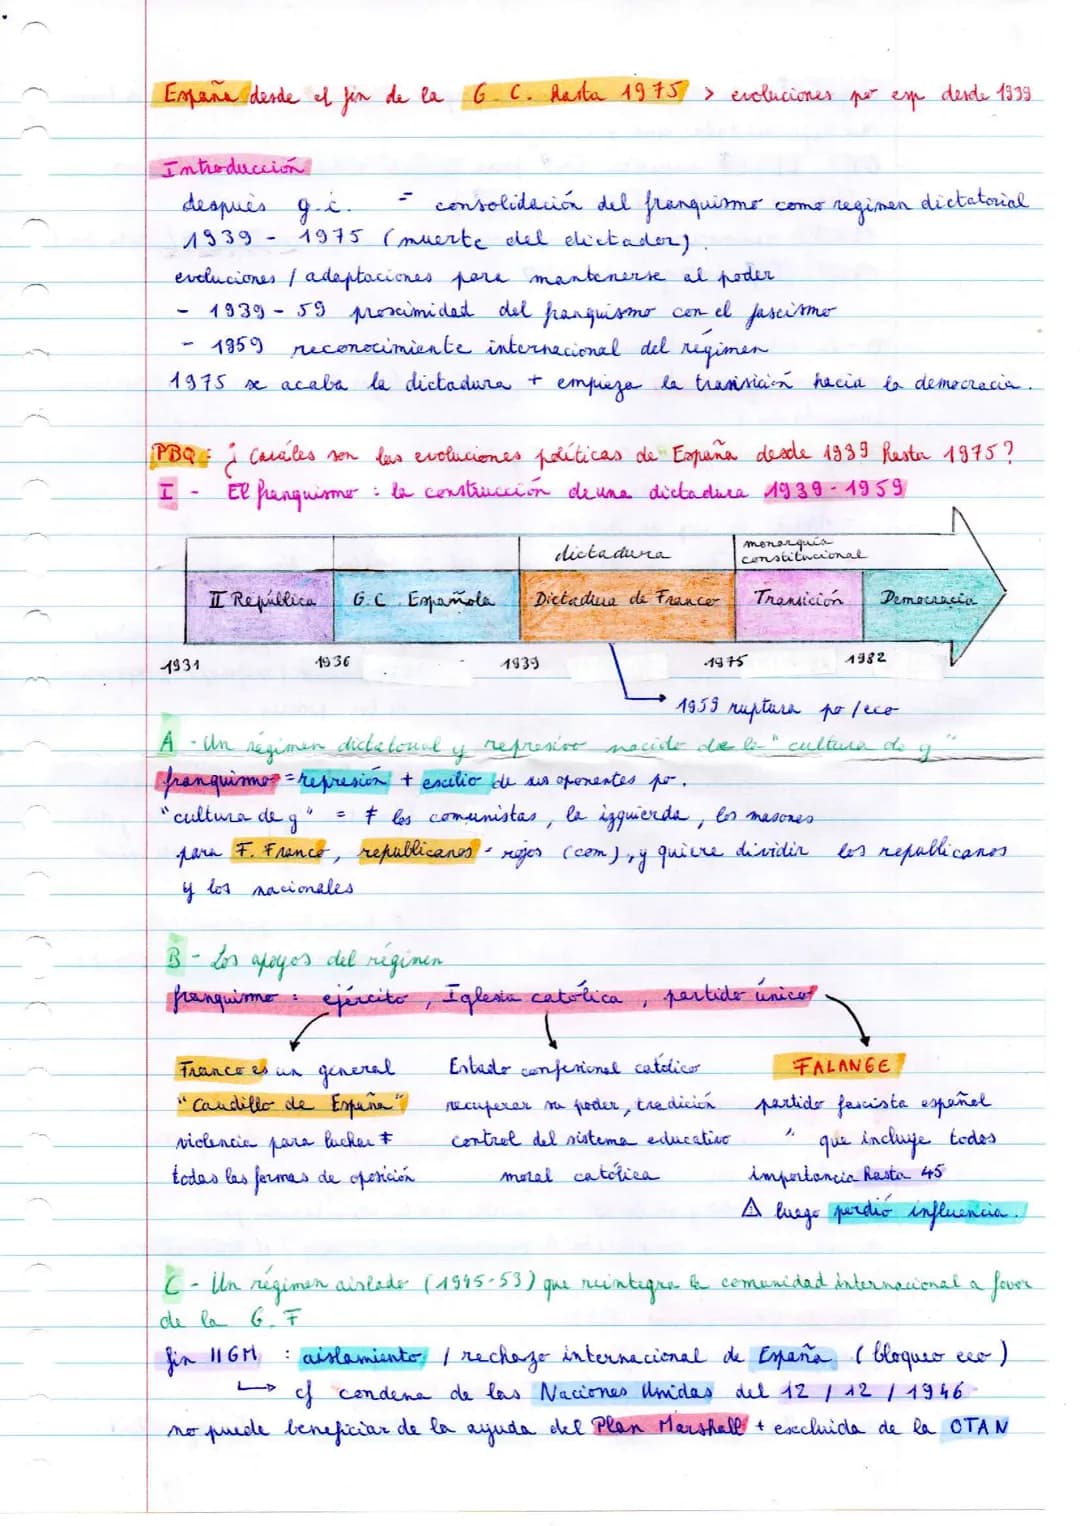 España desde el fin de la G.C. hasta 1975 > evoluciones po esp desde 1939
Introducción
después g.c. = consolidación del franquismo como regimen dictatorial
1939 - 1975 (muerte del dictador).
evoluciones / adaptaciones para mantenerse al poder
- 1939 - 59 proximidad del franquismo con el fascismo
- 1959 reconocimiento internacional del régimen
1975 se acaba la dictadura + empieza la transición hacia la democracia.
PBQ : ¿ Cuáles son las evoluciones políticas de España desde 1939 hasta 1975?
I - El franquismo : la construcción de una dictadura 1939 - 1959
dictadura
monarquía
constitucional
II República G.C Española Dictadura de Franco Transición Democracia
1931 1936 1939 1975 1982
1959 ruptura po / eco
A - Un régimen dictatorial y represivo nacido de la "cultura de g"
franquismo = represión + exilio de sus oponentes po.
"cultura de g" = ≠ los comunistas, la izquierda, los masones
para F. Franco, republicanos = rojos (com), y quiere dividir los republicanos
y los nacionales
B - Los apoyos del régimen
franquismo : ejército, Iglesia católica, partido único
Franco es un general
"Caudillo de España"
violencia para luchar ≠
todas las formas de oposición
Estado confesional católico
recuperar su poder, tradición
control del sistema educativo
moral católica
FALANGE
partido fascista español
" que incluye todos
importancia hasta 45
⚠ luego perdió influencia.
C - Un régimen aislado (1945-53) que reintegra la comunidad internacional a favor
de la G.F
fin IIGM : aislamiento / rechazo internacional de España (bloqueo eco)
↳ cf condena de las Naciones Unidas del 12 / 12 / 1946
no puede beneficiar de la ayuda del Plan Marshall + excluida de la OTAN